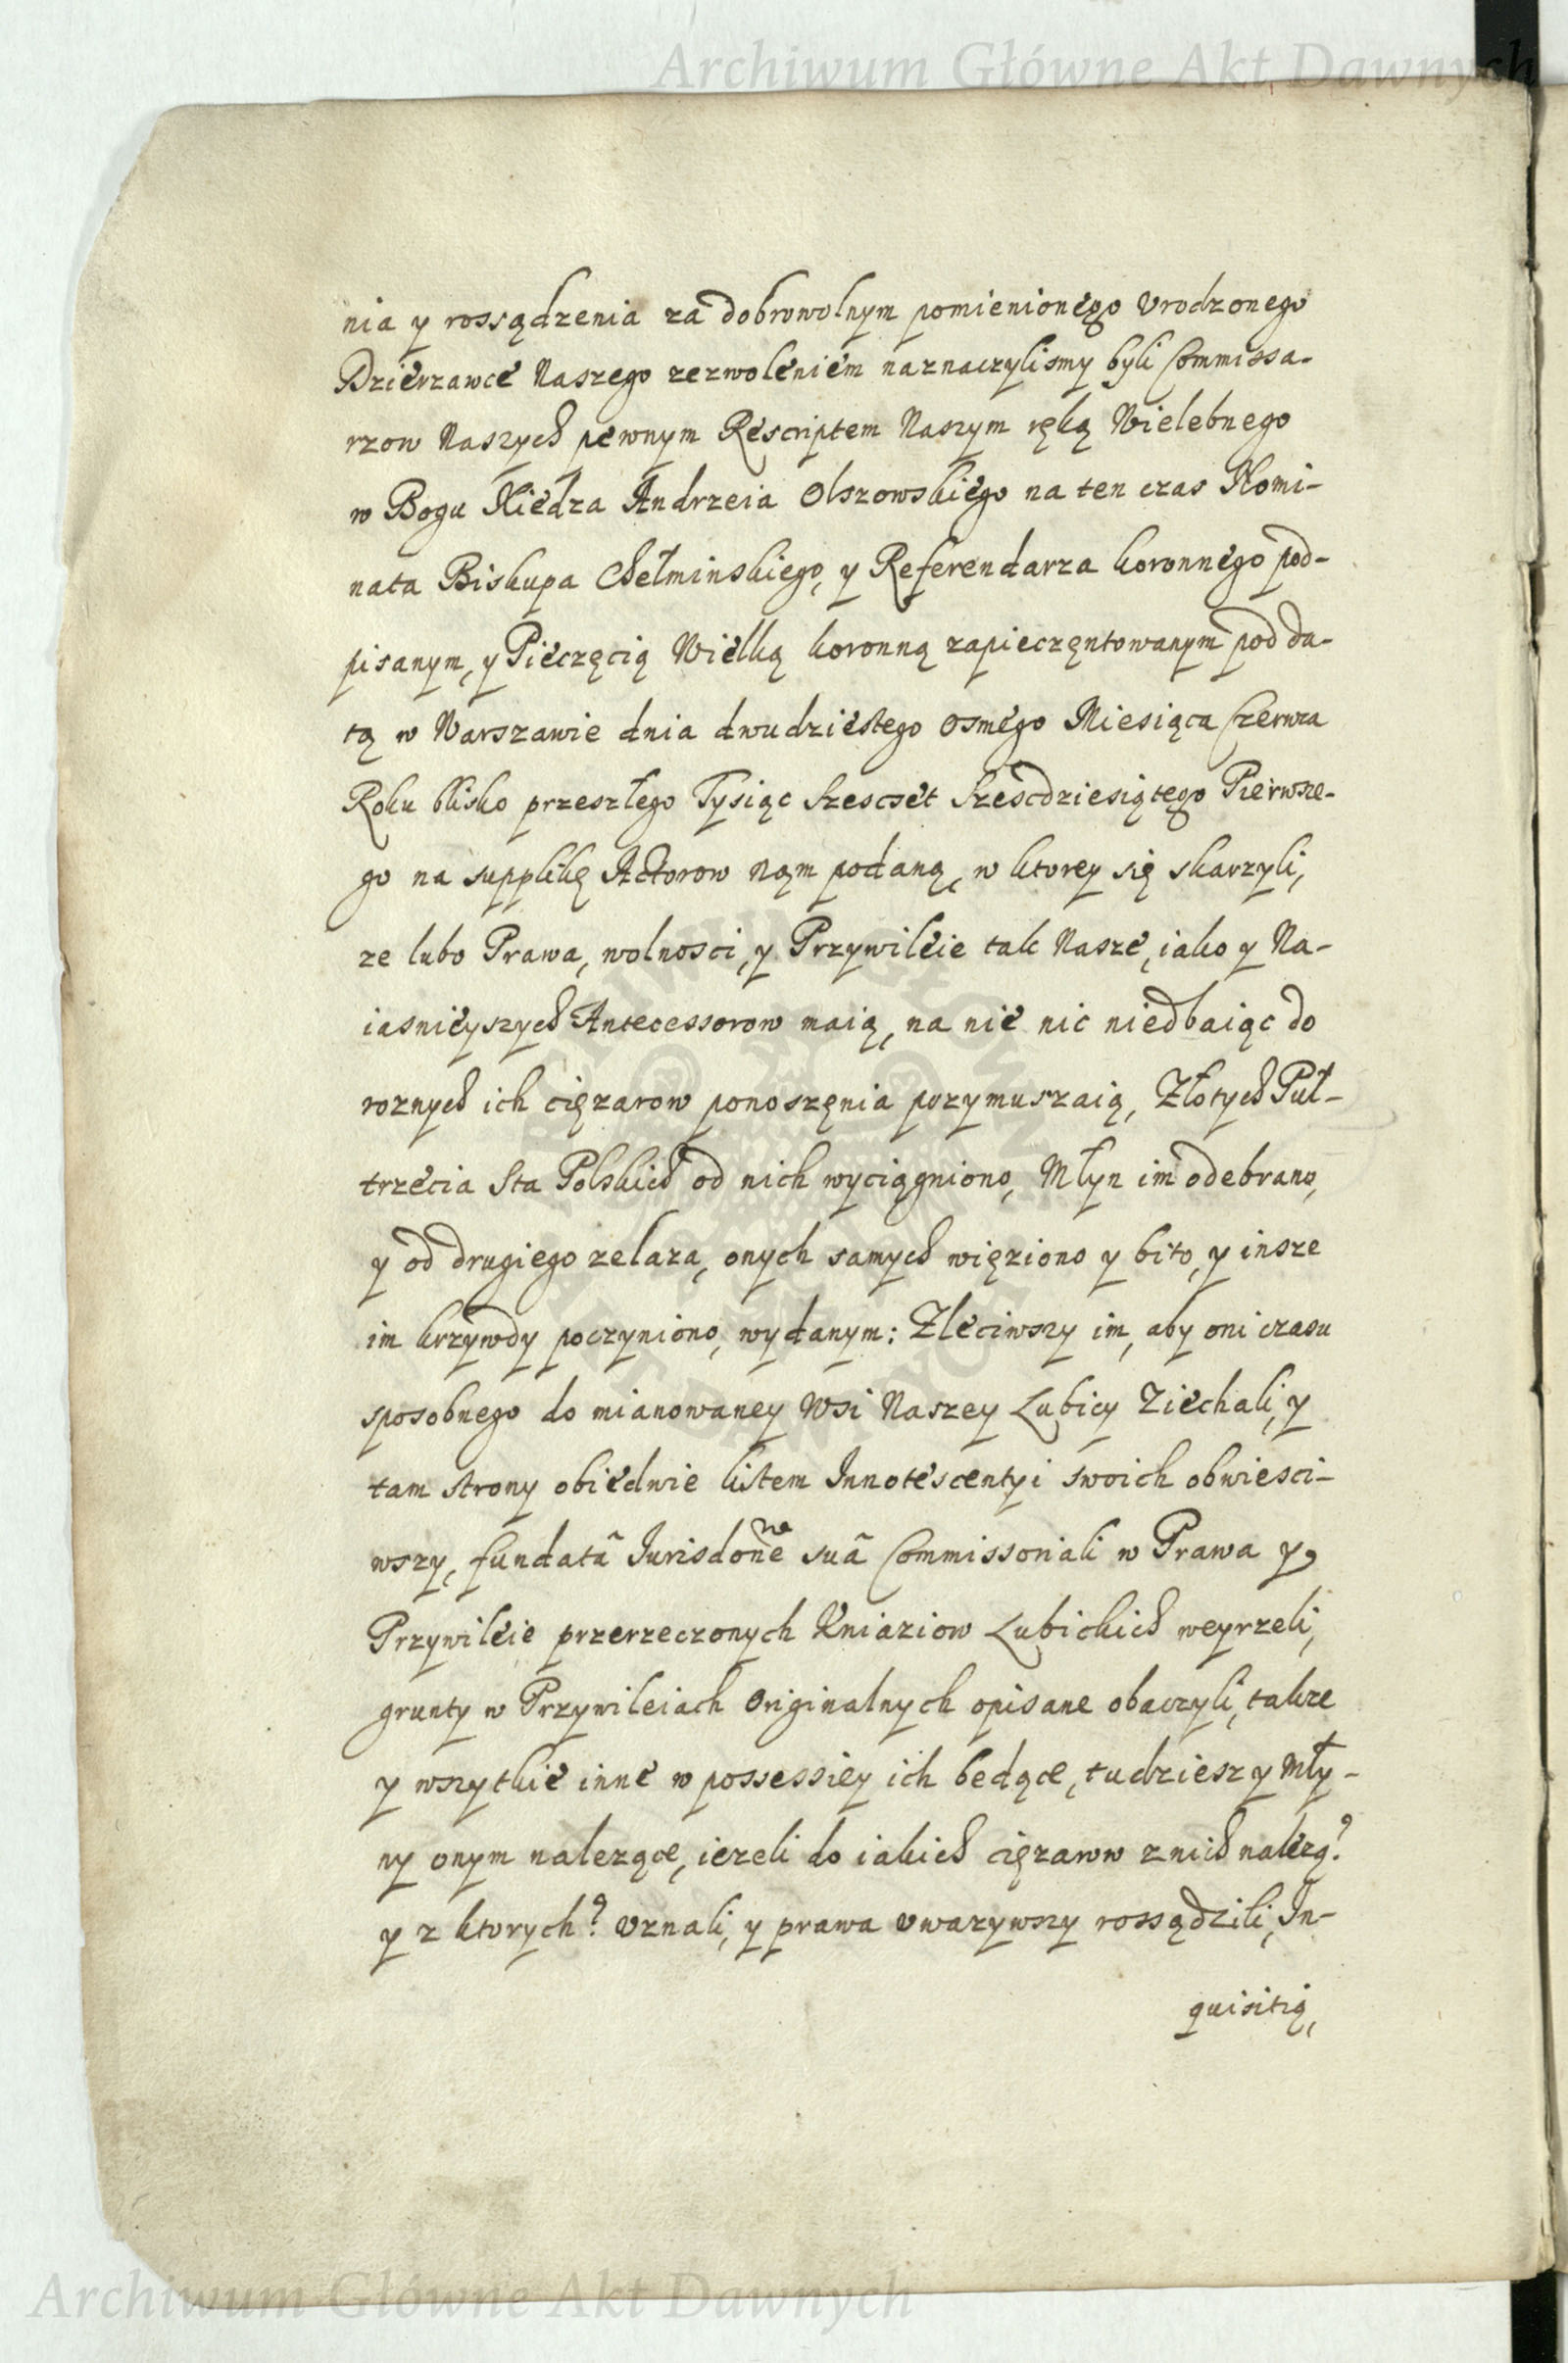 Archiwum Główne Akt Dawnych
nia y rossądzenia za dobrowolnym pomienionego Vrodzonego
Dzierzawcé Naszego zezwoleniém naznaczylismy byli Commissa-
rzow Naszych pewnym Réscriptem Naszym ręką Wielebnego
w Bogu Xiédza Andrzeia Olszowskiégo na ten czas Nomi-
nata Biskupa Chełminskiego, y Referendarza koronnégo pod-
pisanym, y Piéczęcią Wiélką koronną zapieczęntowanym pod da-
tą w Warszawie dnia dwudziéstego osmégo Miesiąca Czerwca
Roku blisko przeszłego Tysiąc szescsét szescdziesiątégo Pierwsze-
go na supplikę Actorow nąm podaną, w ktorey się skarzyli,
ze lubo Prawa, wolnosci, y Przywiléie tak Naszé, iako y Na-
iasniéyszych Antecessorow maią, na nié nic niedbaiąc do
roznych ich cięzarow ponoszęnia przymuszaią, Złotych Puł-
trzécia Sta Polskich od nich wyciągniono, Młyn im odebrano,
y od drugiego zelaza, onych samych więziono y bito, y insze
im krzywdy poczyniono, wydanym: Zléciwszy im, aby oni czasu
sposobnego do mianowaney Wsi Naszey Lubicy Ziéchali, y
tam strony obiédwie listem Innotéscentyi swoich obwiesci-
wszy, fundatã Jurisdone͂ suã Commissoriali w Prawa y
Przywiléie przerzeczonych Kniaziow Lubickich weyrzeli,
grunty w Przywileiach Originalnych opisane obaczyli, takze
y wszytkié inné w possessiéy ich będące, tudziesz y Mły-
ny onym nalezące, iezeli do iakich cięzarow z nich nalézą?
y z ktorych? Vznali, y prawa vwazywszy rossądzili, In-
quisitią,
Archiwum Główne Akt Dawnych